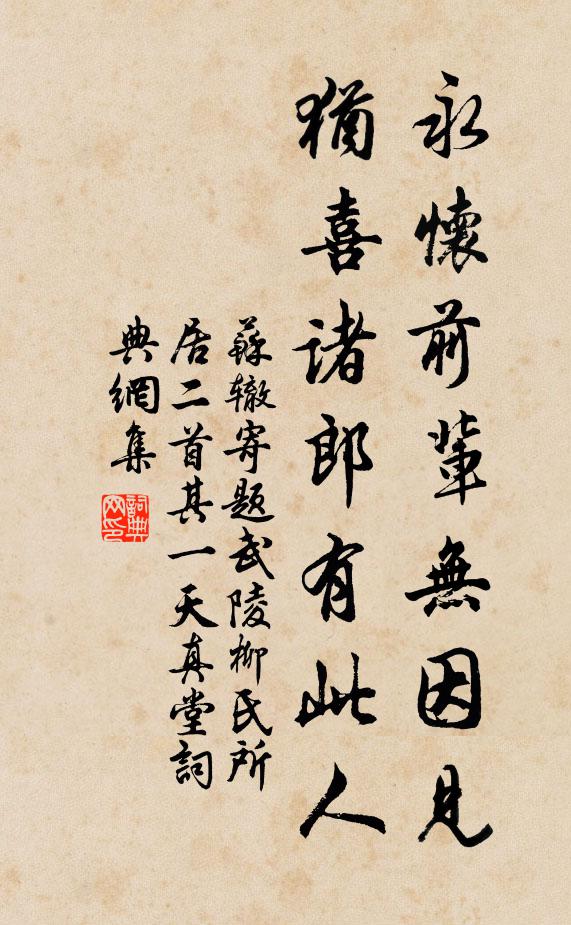 永懷前輩無因見
猶喜諸郎有此人
蘇辙寄題武陵柳氏所
居二首其一天真堂詞
典網集
詞典
网印